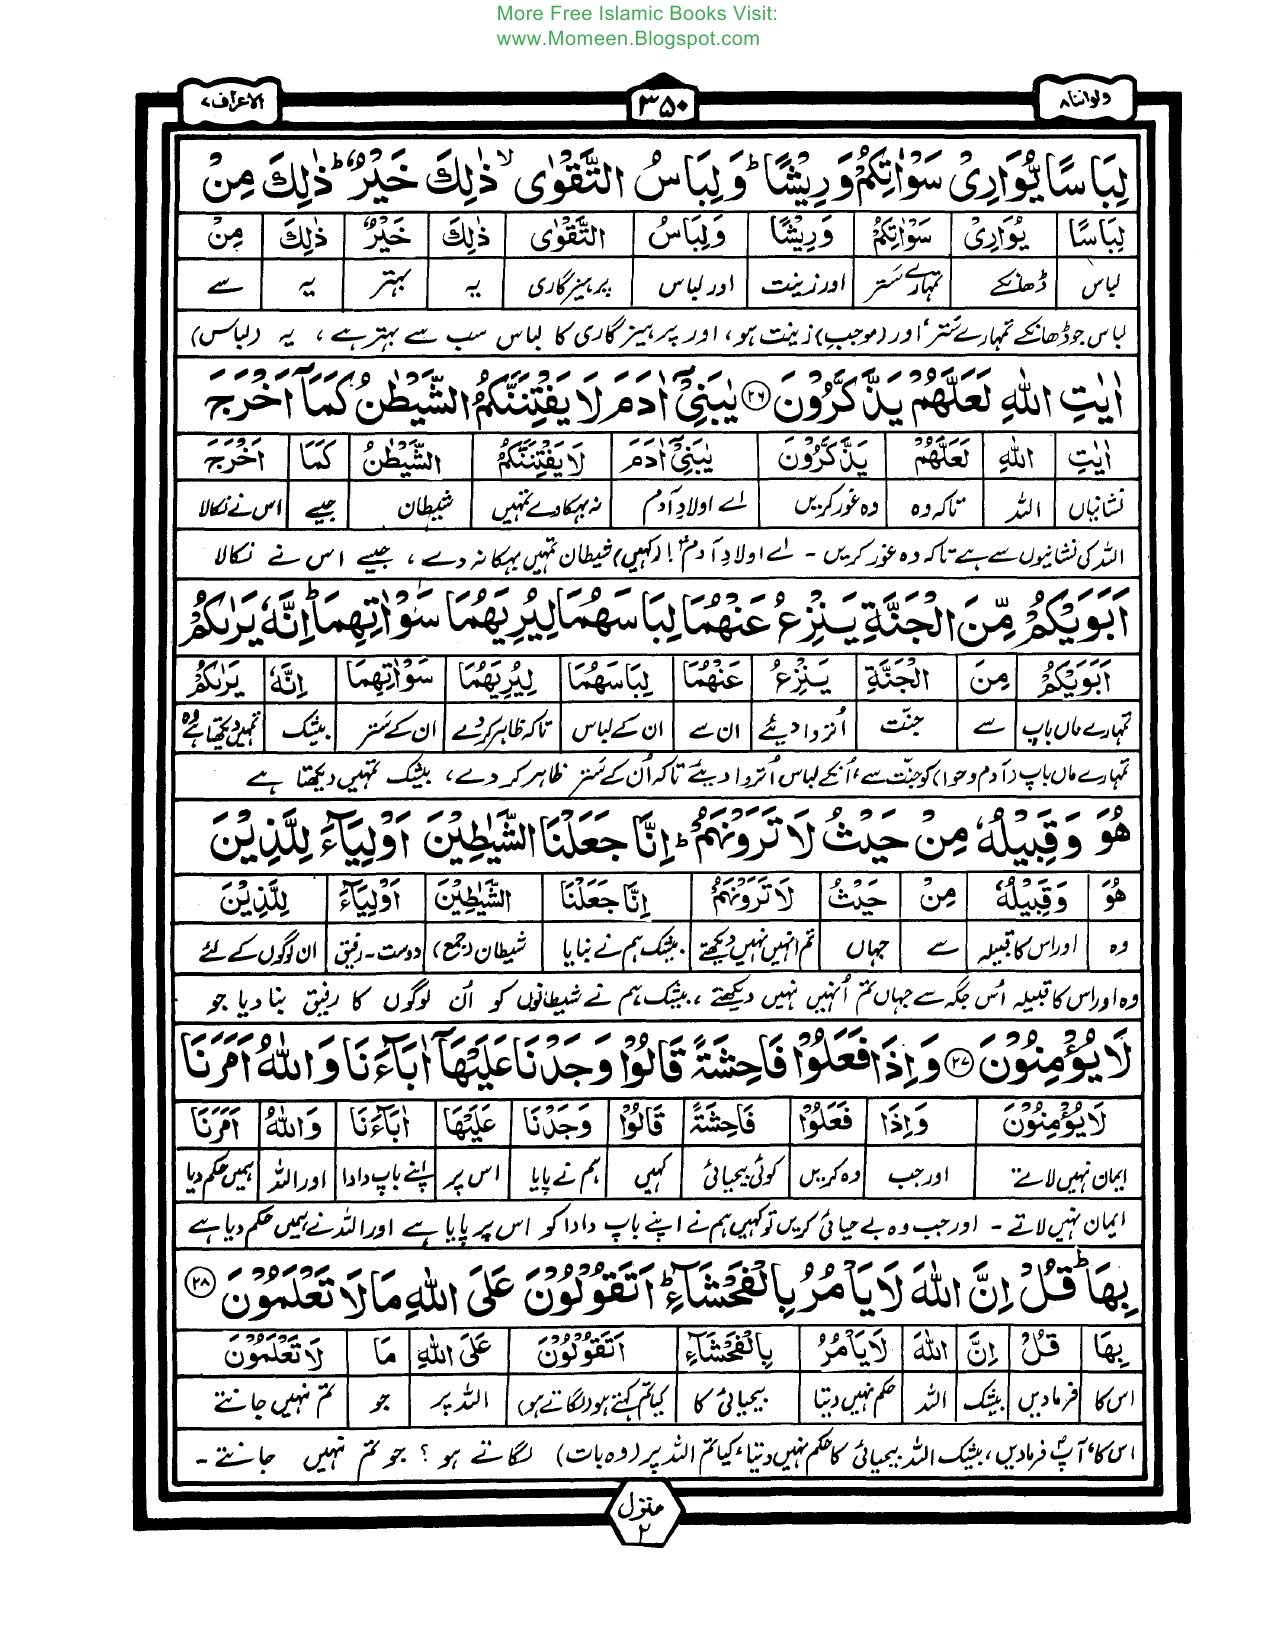 More Free Islamic Books Visit:
www.Momeen.Blogspot.com
ولواننا ۸
۳۵۰
الاعراف ۷
لِبَاسًا يُّوَارِىْ سَوْاٰتِكُمْ وَرِيْشًا ؕ وَلِبَاسُ التَّقْوٰى ۙ ذٰلِكَ خَيْرٌ ؕ ذٰلِكَ مِنْ
لِبَاسًا يُوَارِىْ سَوْاٰتِكُمْ وَرِيْشًا وَلِبَاسُ التَّقْوٰى ذٰلِكَ خَيْرٌ ذٰلِكَ مِنْ
لباس ڈھانکے تمہارے ستر اور زینت اور لباس پرہیزگاری یہ بہتر یہ سے
لباس جو ڈھانکے تمہارے ستر اور (موجبِ) زینت ہو، اور پرہیزگاری کا لباس سب سے بہتر ہے، یہ (لباس)
اٰيٰتِ اللّٰهِ لَعَلَّهُمْ يَذَّكَّرُوْنَ ۲۶ يٰبَنِىْٓ اٰدَمَ لَا يَفْتِنَنَّكُمُ الشَّيْطٰنُ كَمَآ اَخْرَجَ
اٰيٰتِ اللّٰهِ لَعَلَّهُمْ يَذَّكَّرُوْنَ يٰبَنِىْٓ اٰدَمَ لَا يَفْتِنَنَّكُمُ الشَّيْطٰنُ كَمَآ اَخْرَجَ
نشانیاں اللہ تاکہ وہ وہ غور کریں اے اولادِ آدم نہ بہکا دے تمہیں شیطان جیسے اس نے نکالا
اللہ کی نشانیوں سے ہے تاکہ وہ غور کریں - اے اولادِ آدم! (کہیں) شیطان تمہیں بہکا نہ دے، جیسے اس نے نکالا
اَبَوَيْكُمْ مِّنَ الْجَنَّةِ يَنْزِعُ عَنْهُمَا لِبَاسَهُمَا لِيُرِيَهُمَا سَوْاٰتِهِمَا ؕ اِنَّهٗ يَرٰىكُمْ
اَبَوَيْكُمْ مِنَ الْجَنَّةِ يَنْزِعُ عَنْهُمَا لِبَاسَهُمَا لِيُرِيَهُمَا سَوْاٰتِهِمَا اِنَّهٗ يَرٰىكُمْ
تمہارے ماں باپ سے جنّت اُتروا دیئے ان سے ان کے لباس تاکہ ظاہر کردے ان کے ستر بیشک تمہیں دیکھتا ہے وہ
تمہارے ماں باپ (آدم و حوا) کو جنت سے، اُنکے لباس اُتروا دیئے تاکہ اُن کے ستر ظاہر کر دے، بیشک تمہیں دیکھتا ہے
هُوَ وَقَبِيْلُهٗ مِنْ حَيْثُ لَا تَرَوْنَهُمْ ؕ اِنَّا جَعَلْنَا الشَّيٰطِيْنَ اَوْلِيَآءَ لِلَّذِيْنَ
هُوَ وَقَبِيْلُهٗ مِنْ حَيْثُ لَا تَرَوْنَهُمْ اِنَّا جَعَلْنَا الشَّيٰطِيْنَ اَوْلِيَآءَ لِلَّذِيْنَ
وہ اور اس کا قبیلہ سے جہاں تم انہیں نہیں دیکھتے بیشک ہم نے بنایا شیطان (جمع) دوست - رفیق ان لوگوں کے لئے
وہ اور اس کا قبیلہ اُس جگہ سے جہاں تم اُنہیں نہیں دیکھتے، بیشک ہم نے شیطانوں کو اُن لوگوں کا رفیق بنا دیا جو
لَا يُؤْمِنُوْنَ ۲۷ وَاِذَا فَعَلُوْا فَاحِشَةً قَالُوْا وَجَدْنَا عَلَيْهَآ اٰبَآءَنَا وَاللّٰهُ اَمَرَنَا
لَا يُؤْمِنُوْنَ وَاِذَا فَعَلُوْا فَاحِشَةً قَالُوْا وَجَدْنَا عَلَيْهَا اٰبَآءَنَا وَاللّٰهُ اَمَرَنَا
ایمان نہیں لاتے اور جب وہ کریں کوئی بیحیائی کہیں ہم نے پایا اس پر اپنے باپ دادا اور اللہ ہمیں حکم دیا
ایمان نہیں لاتے - اور جب وہ بے حیائی کریں تو کہیں ہم نے اپنے باپ دادا کو اس پر پایا ہے اور اللہ نے ہمیں حکم دیا ہے
بِهَا ؕ قُلْ اِنَّ اللّٰهَ لَا يَاْمُرُ بِالْفَحْشَآءِ ؕ اَتَقُوْلُوْنَ عَلَى اللّٰهِ مَا لَا تَعْلَمُوْنَ ۲۸
بِهَا قُلْ اِنَّ اللّٰهَ لَا يَاْمُرُ بِالْفَحْشَآءِ اَتَقُوْلُوْنَ عَلَى اللّٰهِ مَا لَا تَعْلَمُوْنَ
اس کا فرمادیں بیشک اللہ حکم نہیں دیتا بیحیائی کا کیا تم کہتے ہو (لگاتے ہو) اللہ پر جو تم نہیں جانتے
اس کا، آپؐ فرمادیں، بیشک اللہ بیحیائی کا حکم نہیں دیتا، کیا تم اللہ پر (وہ بات) لگاتے ہو؟ جو تم نہیں جانتے -
منزل
۲